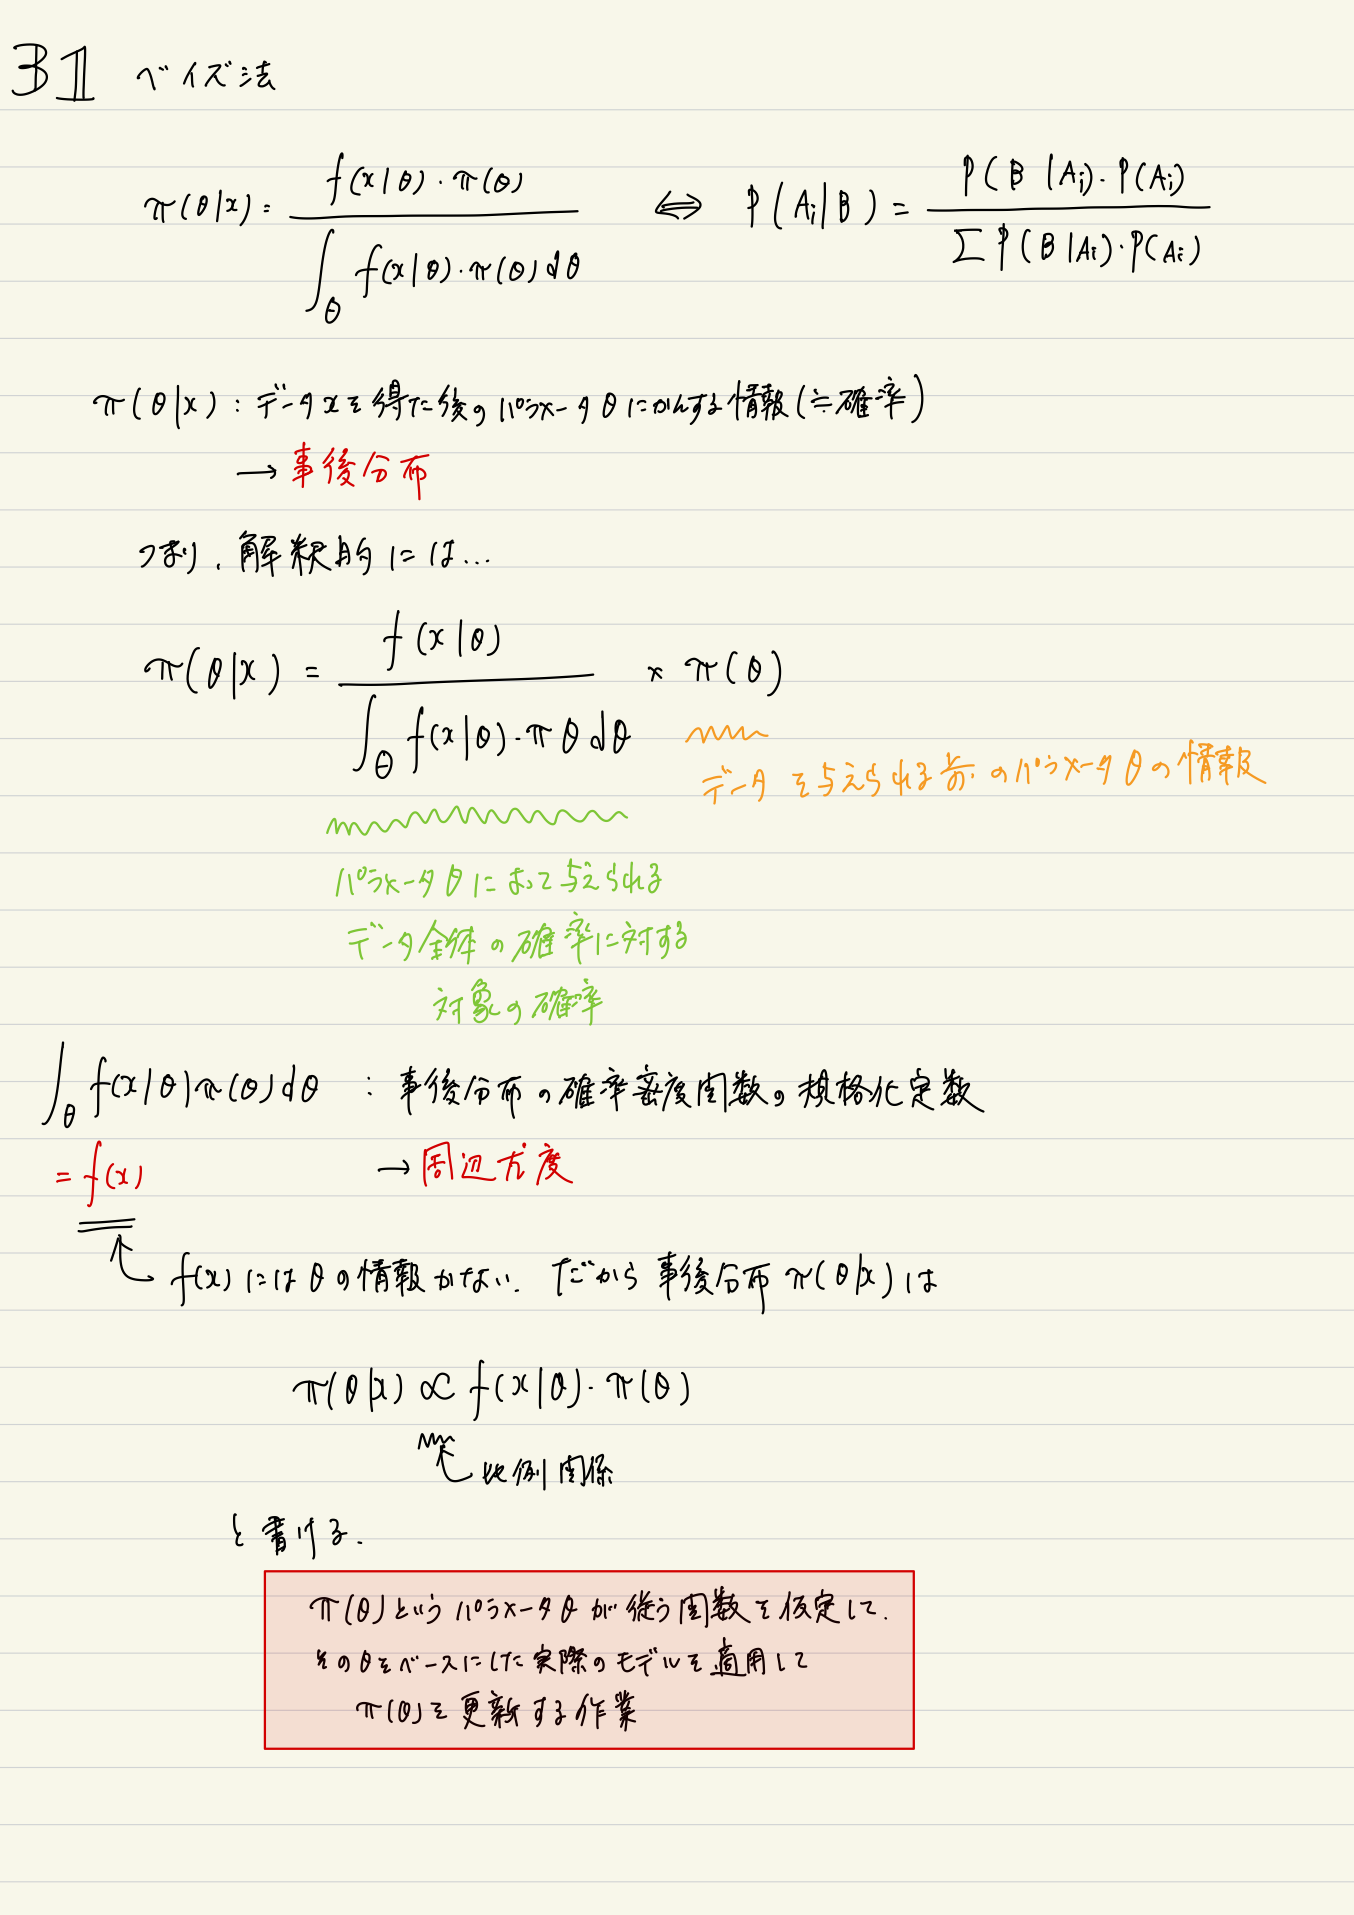 31 ベイズ法
π(θ|x) = f(x|θ)・π(θ) / ∫_Θ f(x|θ)・π(θ)dθ ⇔ P(Aj|B) = P(B|Aj)・P(Aj) / Σ P(B|Ai)・P(Ai)
π(θ|x) : データxを得た後のパラメータθにかんする情報(≒確率)
→ 事後分布
つまり、解釈的には…
π(θ|x) = f(x|θ) / ∫_Θ f(x|θ)・πθdθ × π(θ)
データを与えられる前のパラメータθの情報
パラメータθによって与えられる
データ全体の確率に対する
対象の確率
∫_θ f(x|θ)π(θ)dθ : 事後分布の確率密度関数の規格化定数
= f(x) → 周辺尤度
f(x)にはθの情報がない. だから事後分布π(θ|x)は
π(θ|x) ∝ f(x|θ)・π(θ)
比例関係
と書ける.
π(θ)というパラメータθが従う関数を仮定して、
そのθをベースにした実際のモデルを適用して
π(θ)を更新する作業